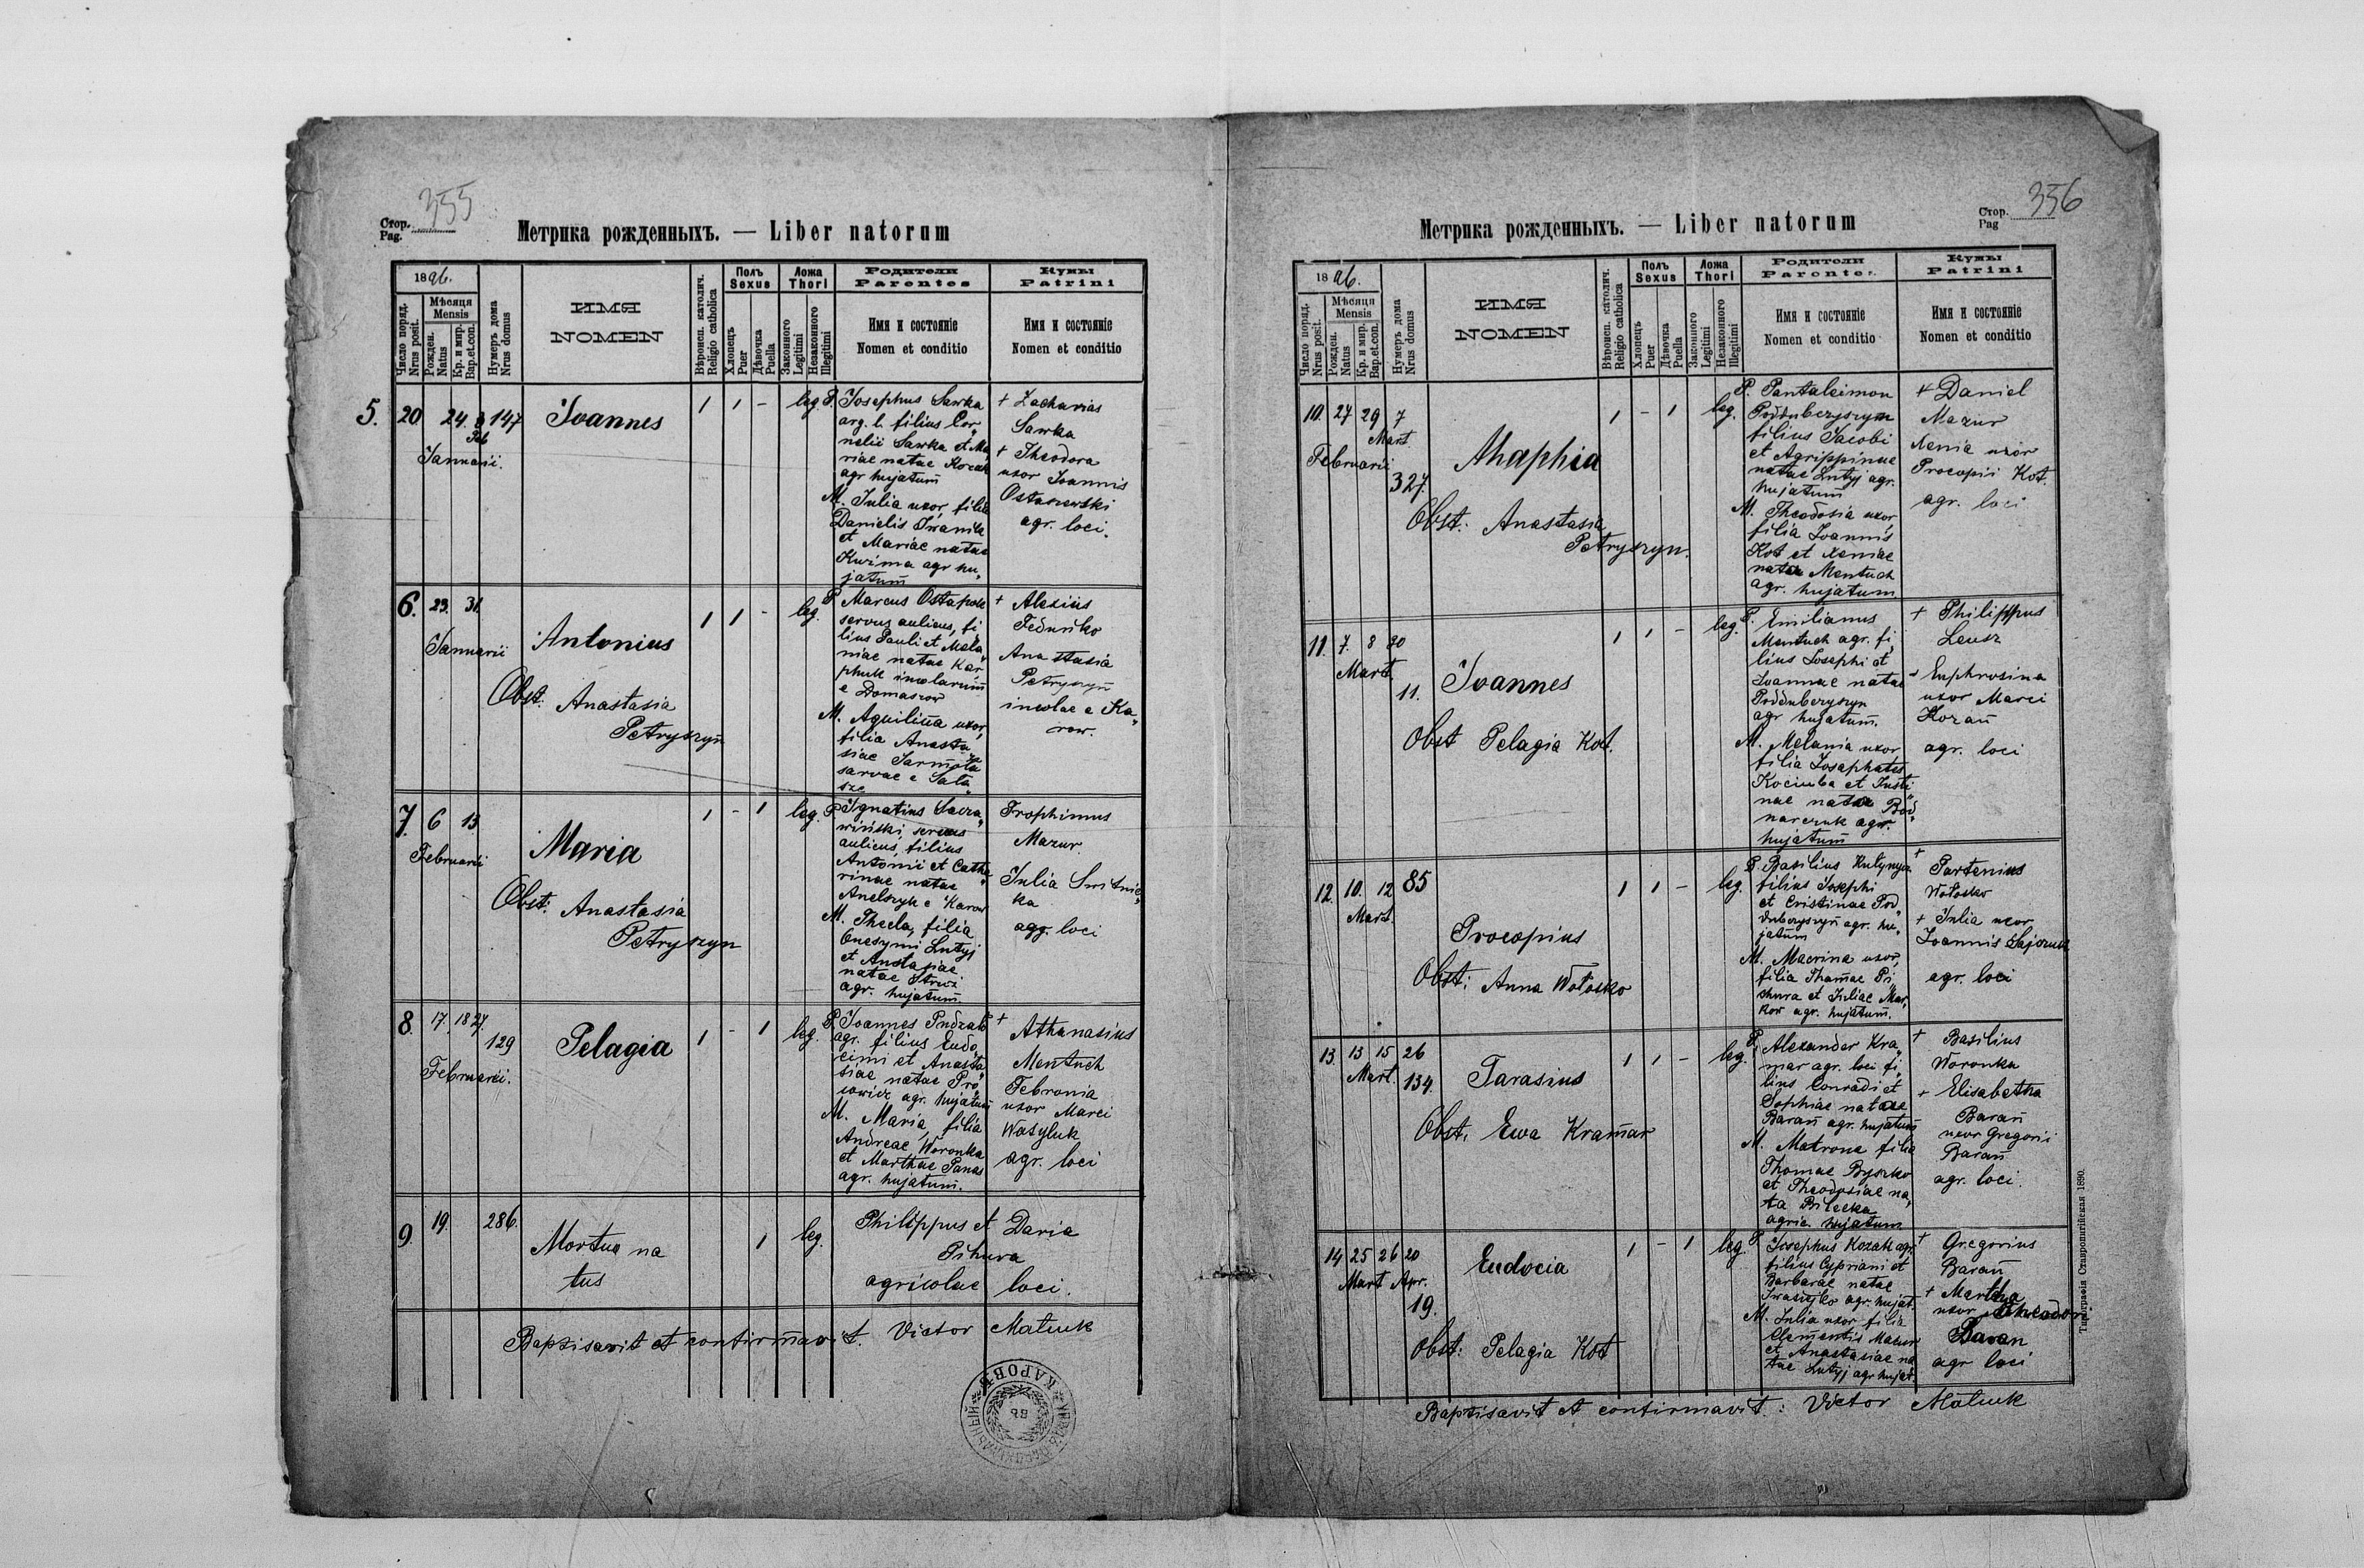 Стор. 355
Pag.
Метрика рожденныхъ. — Liber natorum
1896.
Число поряд.
Nrus posit.
Мѣсяця
Mensis
Рожден.
Natus
Кр. и мир.
Bap.et.con.
Нумеръ дома
Nrus domus
ИМЯ
NOMEN
Вѣроисп. католич.
Religio catholica
Полъ
Sexus
Хлопецъ
Puer
Дѣвочка
Puella
Ложа
Thori
Законного
Legitimi
Незаконного
Illegitimi
Родители
Parentes
Имя и состоянiе
Nomen et conditio
Кумы
Patrini
Имя и состоянiе
Nomen et conditio
5. 20 24. 147 Joannes 1 1 - leg.
Januarii.
P. Josephus Sawka
arg. l. filius Cor„
nelii Sawka et Ma„
riae natae Kozak
agr hujatum
M. Julia uxor, filia
Danielis Iwanik
et Mariae natae
Kuzima agr hu„
jatum
+ Zacharias
Sawka
+ Theodora
uxor Joannis
Ostaszewski
agr. loci.
6. 23. 31. Antonius 1 1 - leg.
Januarii
Obst. Anastasia
Petryszyn
P Marcus Ostapuk
servus aulicus, fi
lius Pauli et Mela„
niae natae Kar„
phuk incolarum
e Domaszow
M. Aquilina uxor,
filia Anasta„
siae Sarmota
servae e Sala„
sze
+ Alexius
Feduńko
Anastasia
Petryszyn
incolae e Ka„
row.
7. 6 13 Maria 1 - 1 leg.
Februarii
Obst: Anastasia
Petryszyn
P Ignatius Sacza„
wiński, servus
aulicus, filius
Antonii et Catha„
rinae natae
Anelszyk e Karow
M. Thecla, filia
Onesymi Lutyj
et Anstasiae
natae Struz
agr. hujatum
Trophimus
Mazur
Julia Switnic„
ka
agr. loci
8. 17. 18 27. 129 Pelagia 1 - 1 leg.
Februarii.
P. Joannes Pudzalo
agr. filius Eudo„
cimi et Anasta„
siae natae Pro„
cowicz agr. hujatum
M. Maria, filia
Andreae Woronka
et Marthae Panas
agr. hujatum.
+ Athanasius
Mentuch
Febronia
uxor Marci
Wasyluk
agr. loci
9. 19. 286. Mortuo na 1 leg.
tus
Philippus et Daria
Pihura
agricolae loci.
Baptisavit et confirmavit. Victor Matiuk
КАРОВѢ
Стор. 356
Pag
Метрика рожденныхъ. — Liber natorum
1896.
Число поряд.
Nrus posit.
Мѣсяця
Mensis
Рожден.
Natus
Кр. и мир.
Bap.et.con.
Нумеръ дома
Nrus domus
ИМЯ
NOMEN
Вѣроисп. католич.
Religio catholica
Полъ
Sexus
Хлопецъ
Puer
Дѣвочка
Puella
Ложа
Thori
Законного
Legitimi
Незаконного
Illegitimi
Родители
Parentes
Имя и состоянiе
Nomen et conditio
Кумы
Patrini
Имя и состоянiе
Nomen et conditio
10. 27 29 7 Ahaphia 1 - 1 leg.
Mart
Februarii
327.
Obst: Anastasia
Petryszyn.
P. Pantaleimon
Poddubczyszyn
filius Jacobi
et Agrippinae
natae Lutyj agr.
hujatum
M. Theodosia uxor,
filia Joannis
Kot et Xeniae
natae Mentuch
agr. hujatum
+ Daniel
Mazur
Xenia uxor
Procopii Kot.
agr. loci
11. 7. 8 30 Joannes 1 1 - leg.
Mart.
11.
Obst Pelagia Kot.
P. Emilianus
Mentuch agr. fi„
lius Josephi et
Joannae natae
Poddubczyszyn
agr hujatum.
M. Melania uxor
filia Josaphates
Kociuba et Justi„
nae natae Bod„
narczuk agr.
hujatum
+ Philippus
Leusz
+ Euphrosina
uxor Marci
Kozań
agr. loci
12. 10. 12 85 Procopius 1 1 - leg.
Mart.
Obst: Anna Wołosko
P. Basilius Hulynycz
filius Josephi
et Cristinae Pod„
dubczyszyn agr. hu„
jatum
M. Macrina uxor,
filia Thamae Pi„
hura et Juliae Mar„
kow agr. hujatum.
+ Partenius
Wołosko
+ Julia uxor
Joannis Sajczuk
agr. loci
13. 13 15 26 Tarasius 1 1 - leg.
Mart. 134.
Obst. Ewa Kramar
P. Alexander Kra„
mar agr. loci fi„
lius Conradi et
Sophiae natae
Barań agr. hujatum
M. Matrona filia
Thomae Byszko
et Theodosiae na„
ta Bilecka
agric. hujatum
+ Basilius
Woronka
+ Elisabetha
Barań
uxor Gregorii
Barań
agr. loci.
14 25 26 20 Eudocia 1 - 1 leg.
Mart Apr.
19.
Obst: Pelagia Kot
P Josephus Kozak agr.
filius Cypriani et
Barbarae natae
Iwasiejko agr. hujat.
M. Julia uxor filia
Clementis Mazur
et Anastasiae na
tae Lutyj agr hujat.
+ Gregorius
Barań
+ Martha
uxor Theodori
Baran
agr loci
Baptisavit et confirmavit: Victor Matiuk
Типографія Ставропигійская 1890.